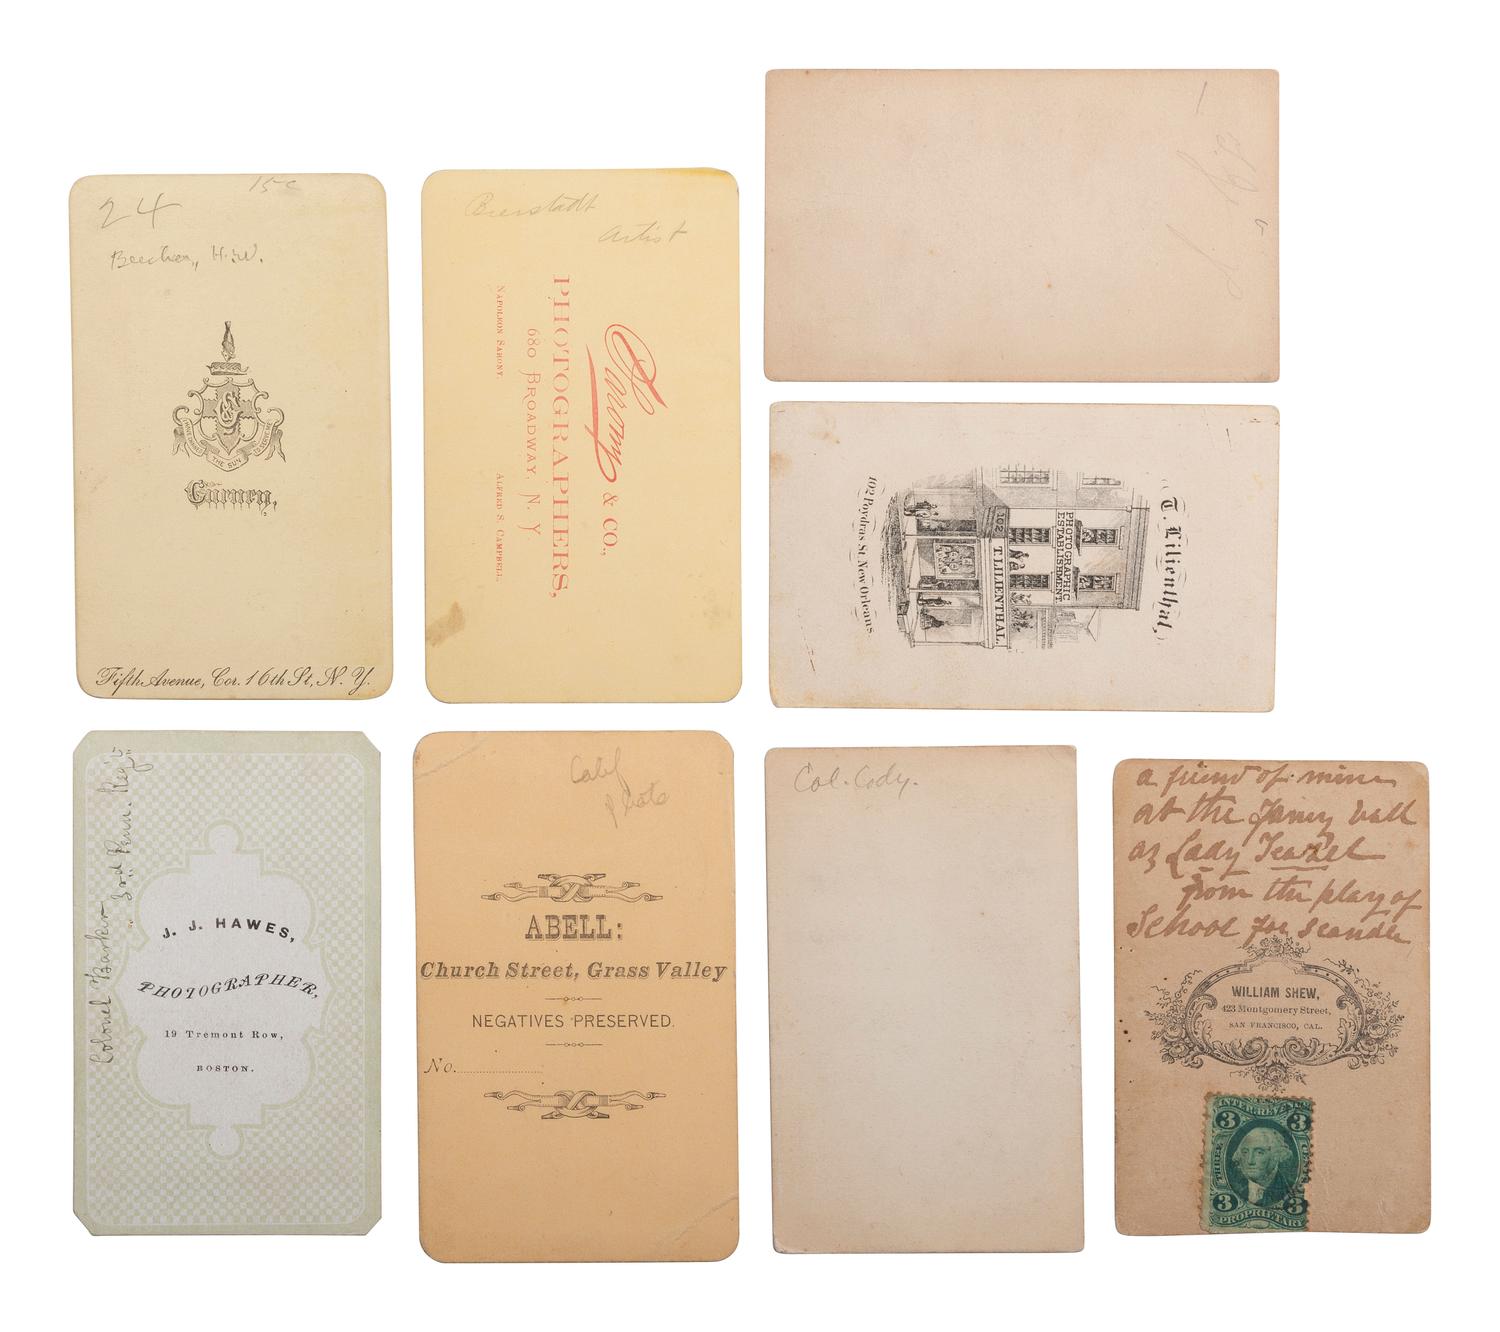 24
15c
Beecher, H.W.
THE SUN
Gurney,
Fifth Avenue, Cor. 16th St, N. Y.
Bierstadt
Artist
Sarony & CO.,
PHOTOGRAPHERS,
680 BROADWAY, N. Y
NAPOLEON SARONY.
ALFRED S. CAMPBELL.
T. Lilienthal,
PHOTOGRAPHIC
ESTABLISHMENT
102
T. LILIENTHAL.
102 Poydras St New Orleans.
Colonel Barker
3rd Penn. Reg't
J. J. HAWES,
PHOTOGRAPHER,
19 Tremont Row,
BOSTON.
Calif
Photo
ABELL:
Church Street, Grass Valley
NEGATIVES PRESERVED.
No.
Col. Cody.
a friend of mine
at the Fancy ball
as Lady Teazel
from the play of
School for Scandle
WILLIAM SHEW,
423 Montgomery Street,
SAN FRANCISCO, CAL.
INTER. REVENUE
3 3
THREE CENTS
3 3
PROPRIETARY